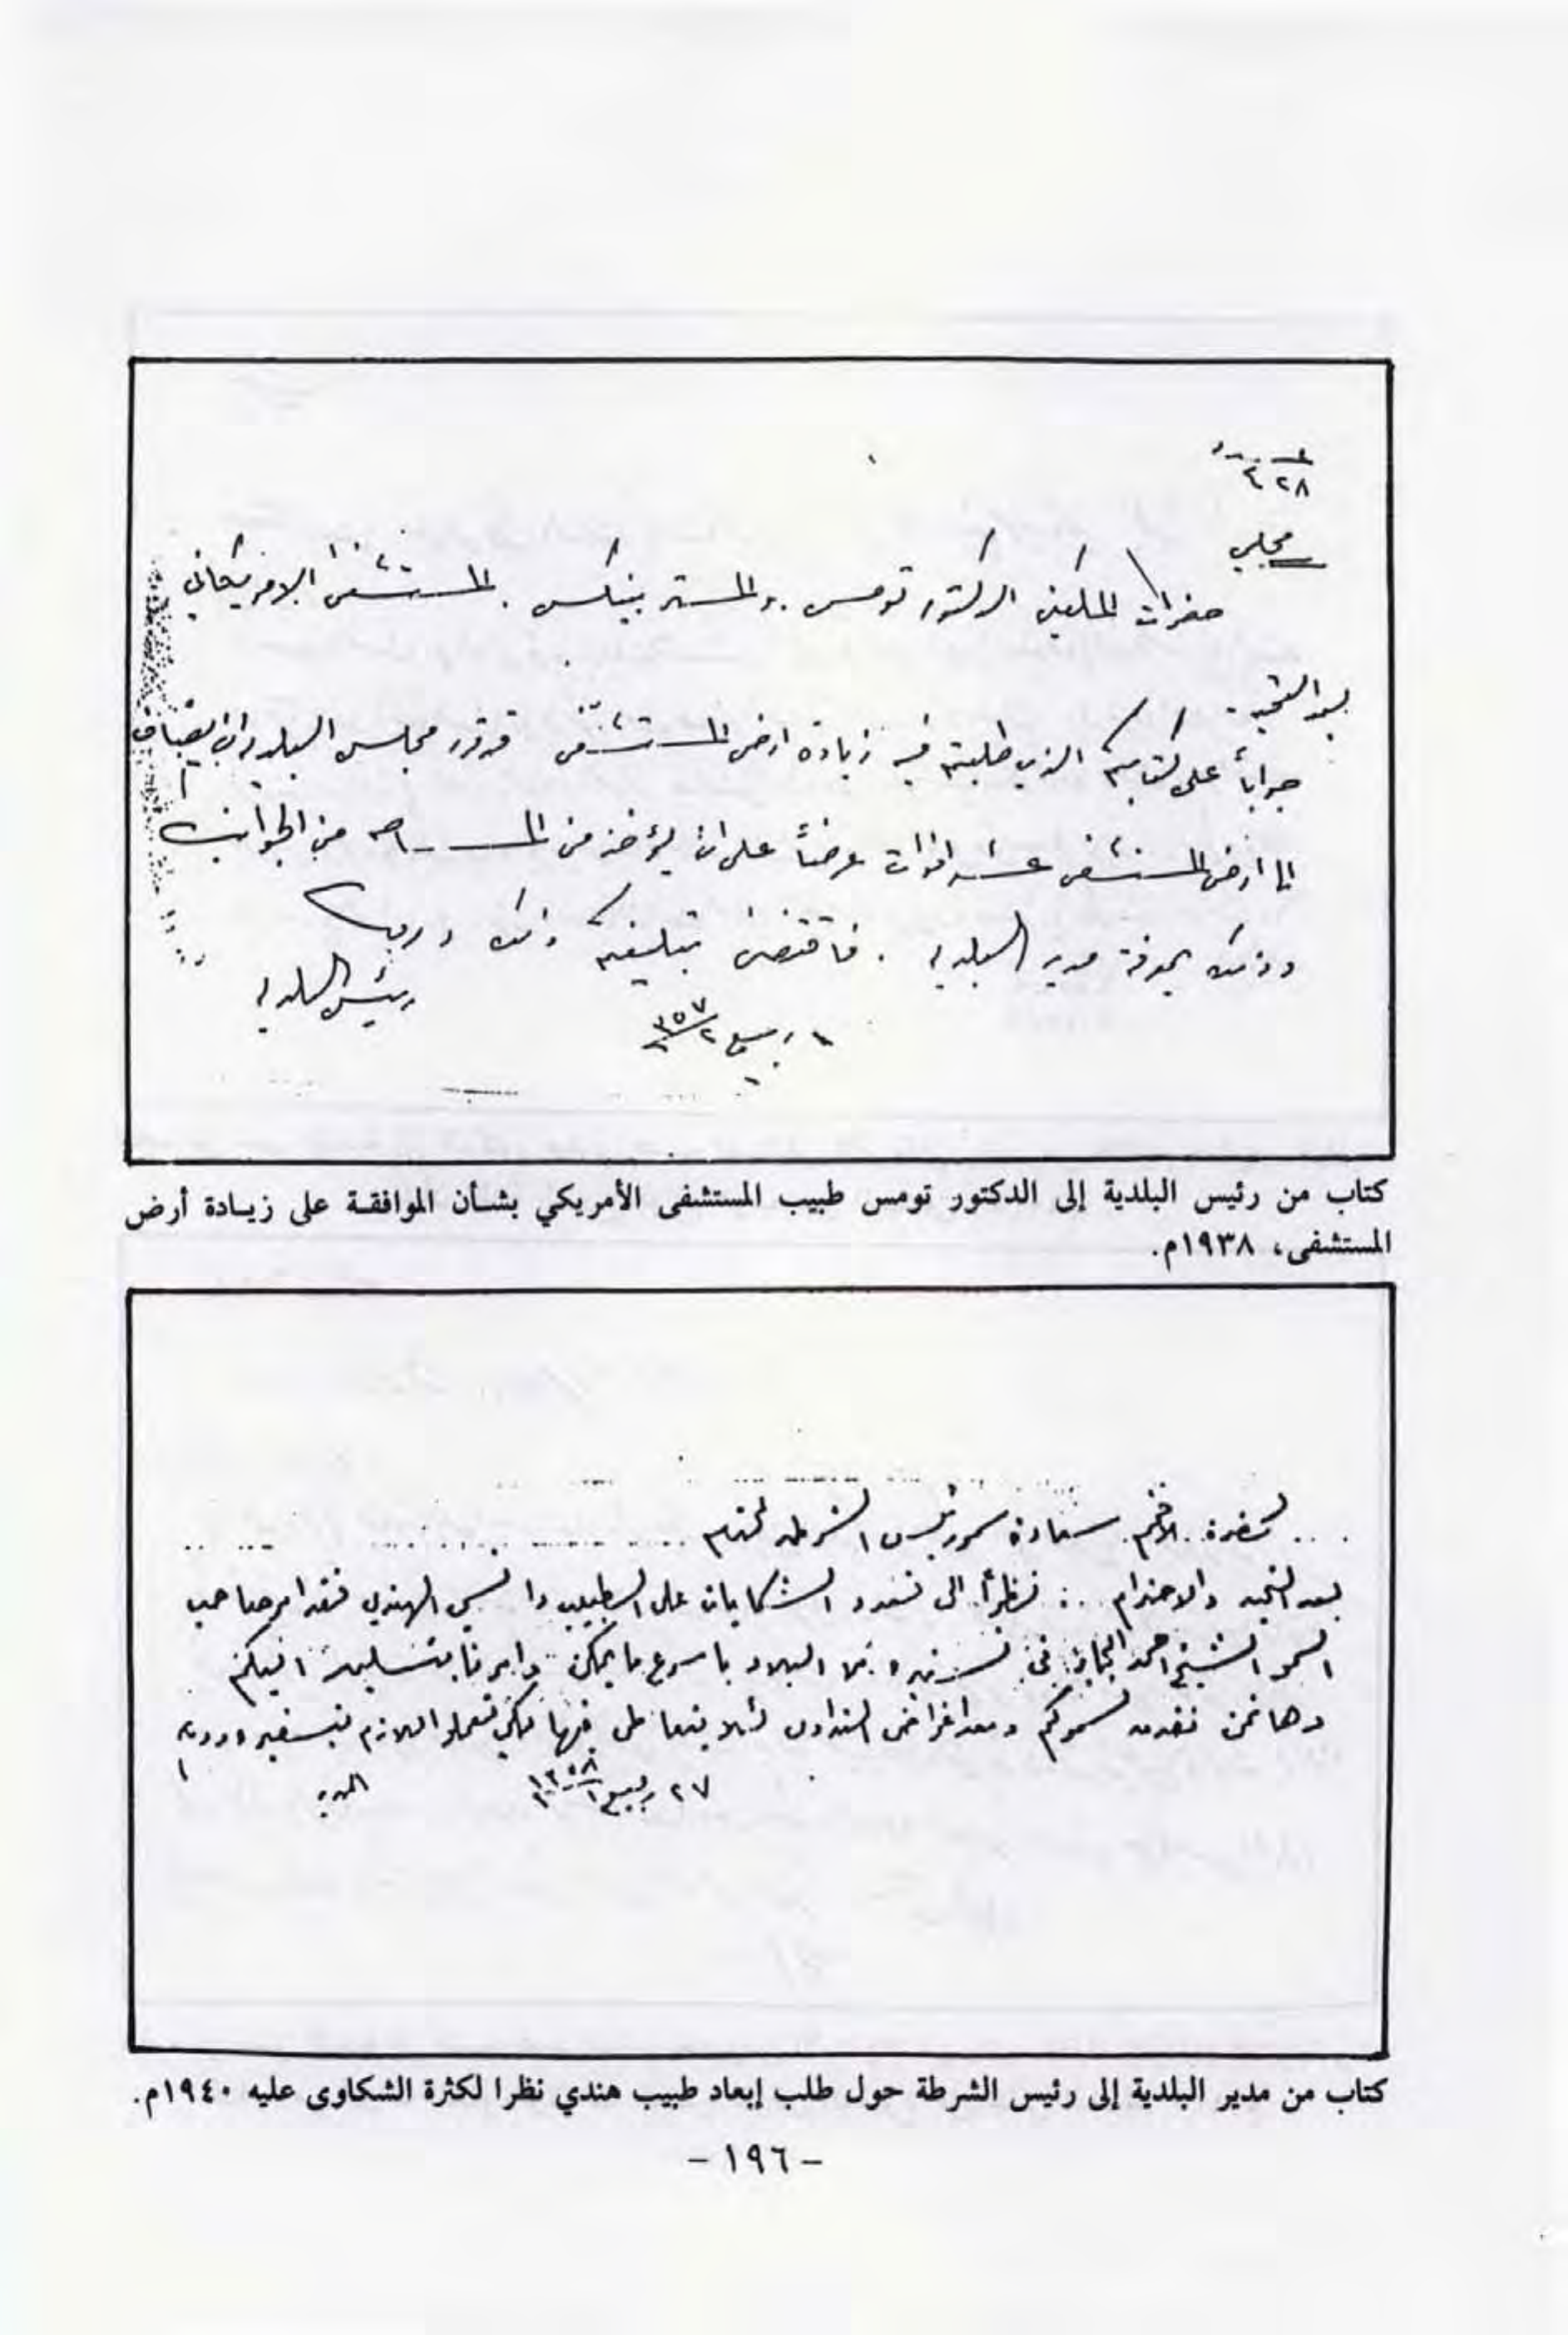 عدد
٤٢٨
مجلس
حضرات المكرمين الدكتور تومس والمستر بينكس المستشفى الامريكاني
بعد التحية
جواباً على كتابكم الذي طلبتم فيه زيادة ارض المستشفى قد قرر مجلس البلدية ان يضاف
الى ارض المستشفى عشرة اقوات عرضاً على ان يؤخذ من من الجوانب
وذلك بمعرفة مدير البلدية . فاقتضى تبليغكم ذلك ودمتم
رئيس البلدية
ربيع ٢ ١٣٥٧
كتاب من رئيس البلدية إلى الدكتور تومس طبيب المستشفى الأمريكي بشأن الموافقة على زيادة أرض
المستشفى، ١٩٣٨م.
لحضرة الافخم سعادة سمو رئيس الشرطه المحترم
بعد التحيه والاحترام .: نظراً الى تعدد الشكايات على الطبيب الهندي فقد امر صاحب
السمو الشيخ احمد الجابر في تسفيره من البلاد باسرع ما يمكن وامرنا بتسليمه اليكم
وها نحن نقدمه لسموكم ومعه اغراض التداوى لئلا يتعاطى فيها لكي تعملوا اللازم بتسفيره ودمتم
٢٧ ربيع ١ ١٣٥٨
المدير
كتاب من مدير البلدية إلى رئيس الشرطة حول طلب إبعاد طبيب هندي نظرا لكثرة الشكاوى عليه ١٩٤٠م.
- ١٩٦ -